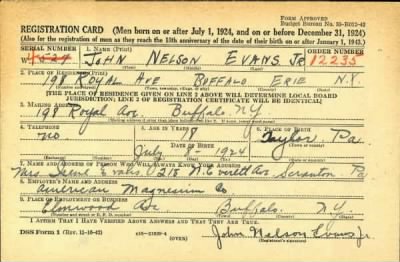 FORM APPROVED
Budget Bureau No. 33-R012-42
REGISTRATION CARD (Men born on or after July 1, 1924, and on or before December 31, 1924)
(Also for the registration of men as they reach the 18th anniversary of the date of their birth on or after January 1, 1943.)
SERIAL NUMBER 1. NAME (Print) ORDER NUMBER
W JOHN NELSON EVANS JR 12235
(First) (Middle) (Last)
2. PLACE OF RESIDENCE (Print)
198 ROYAL AVE BUFFALO ERIE N.Y.
[THE PLACE OF RESIDENCE GIVEN ON LINE 2 ABOVE WILL DETERMINE LOCAL BOARD
JURISDICTION; LINE 2 OF REGISTRATION CERTIFICATE WILL BE IDENTICAL]
3. MAILING ADDRESS
198 Royal Ave. Buffalo N.Y.
4. TELEPHONE 5. AGE IN YEARS 6. PLACE OF BIRTH
no. 18 Taylor, Pa.
DATE OF BIRTH
July 1924
7. NAME AND ADDRESS OF PERSON WHO WILL ALWAYS KNOW YOUR ADDRESS
Mrs. Evans 218 N. Everett Av. Scranton Pa.
8. EMPLOYER'S NAME AND ADDRESS
American Magnesium Co
9. PLACE OF EMPLOYMENT OR BUSINESS
Elmwood Ave Buffalo, N.Y.
I AFFIRM THAT I HAVE VERIFIED ABOVE ANSWERS AND THAT THEY ARE TRUE.
DSS Form 1 (Rev. 11-16-42) (OVER) John Nelson Evans Jr.
(Registrant's signature)